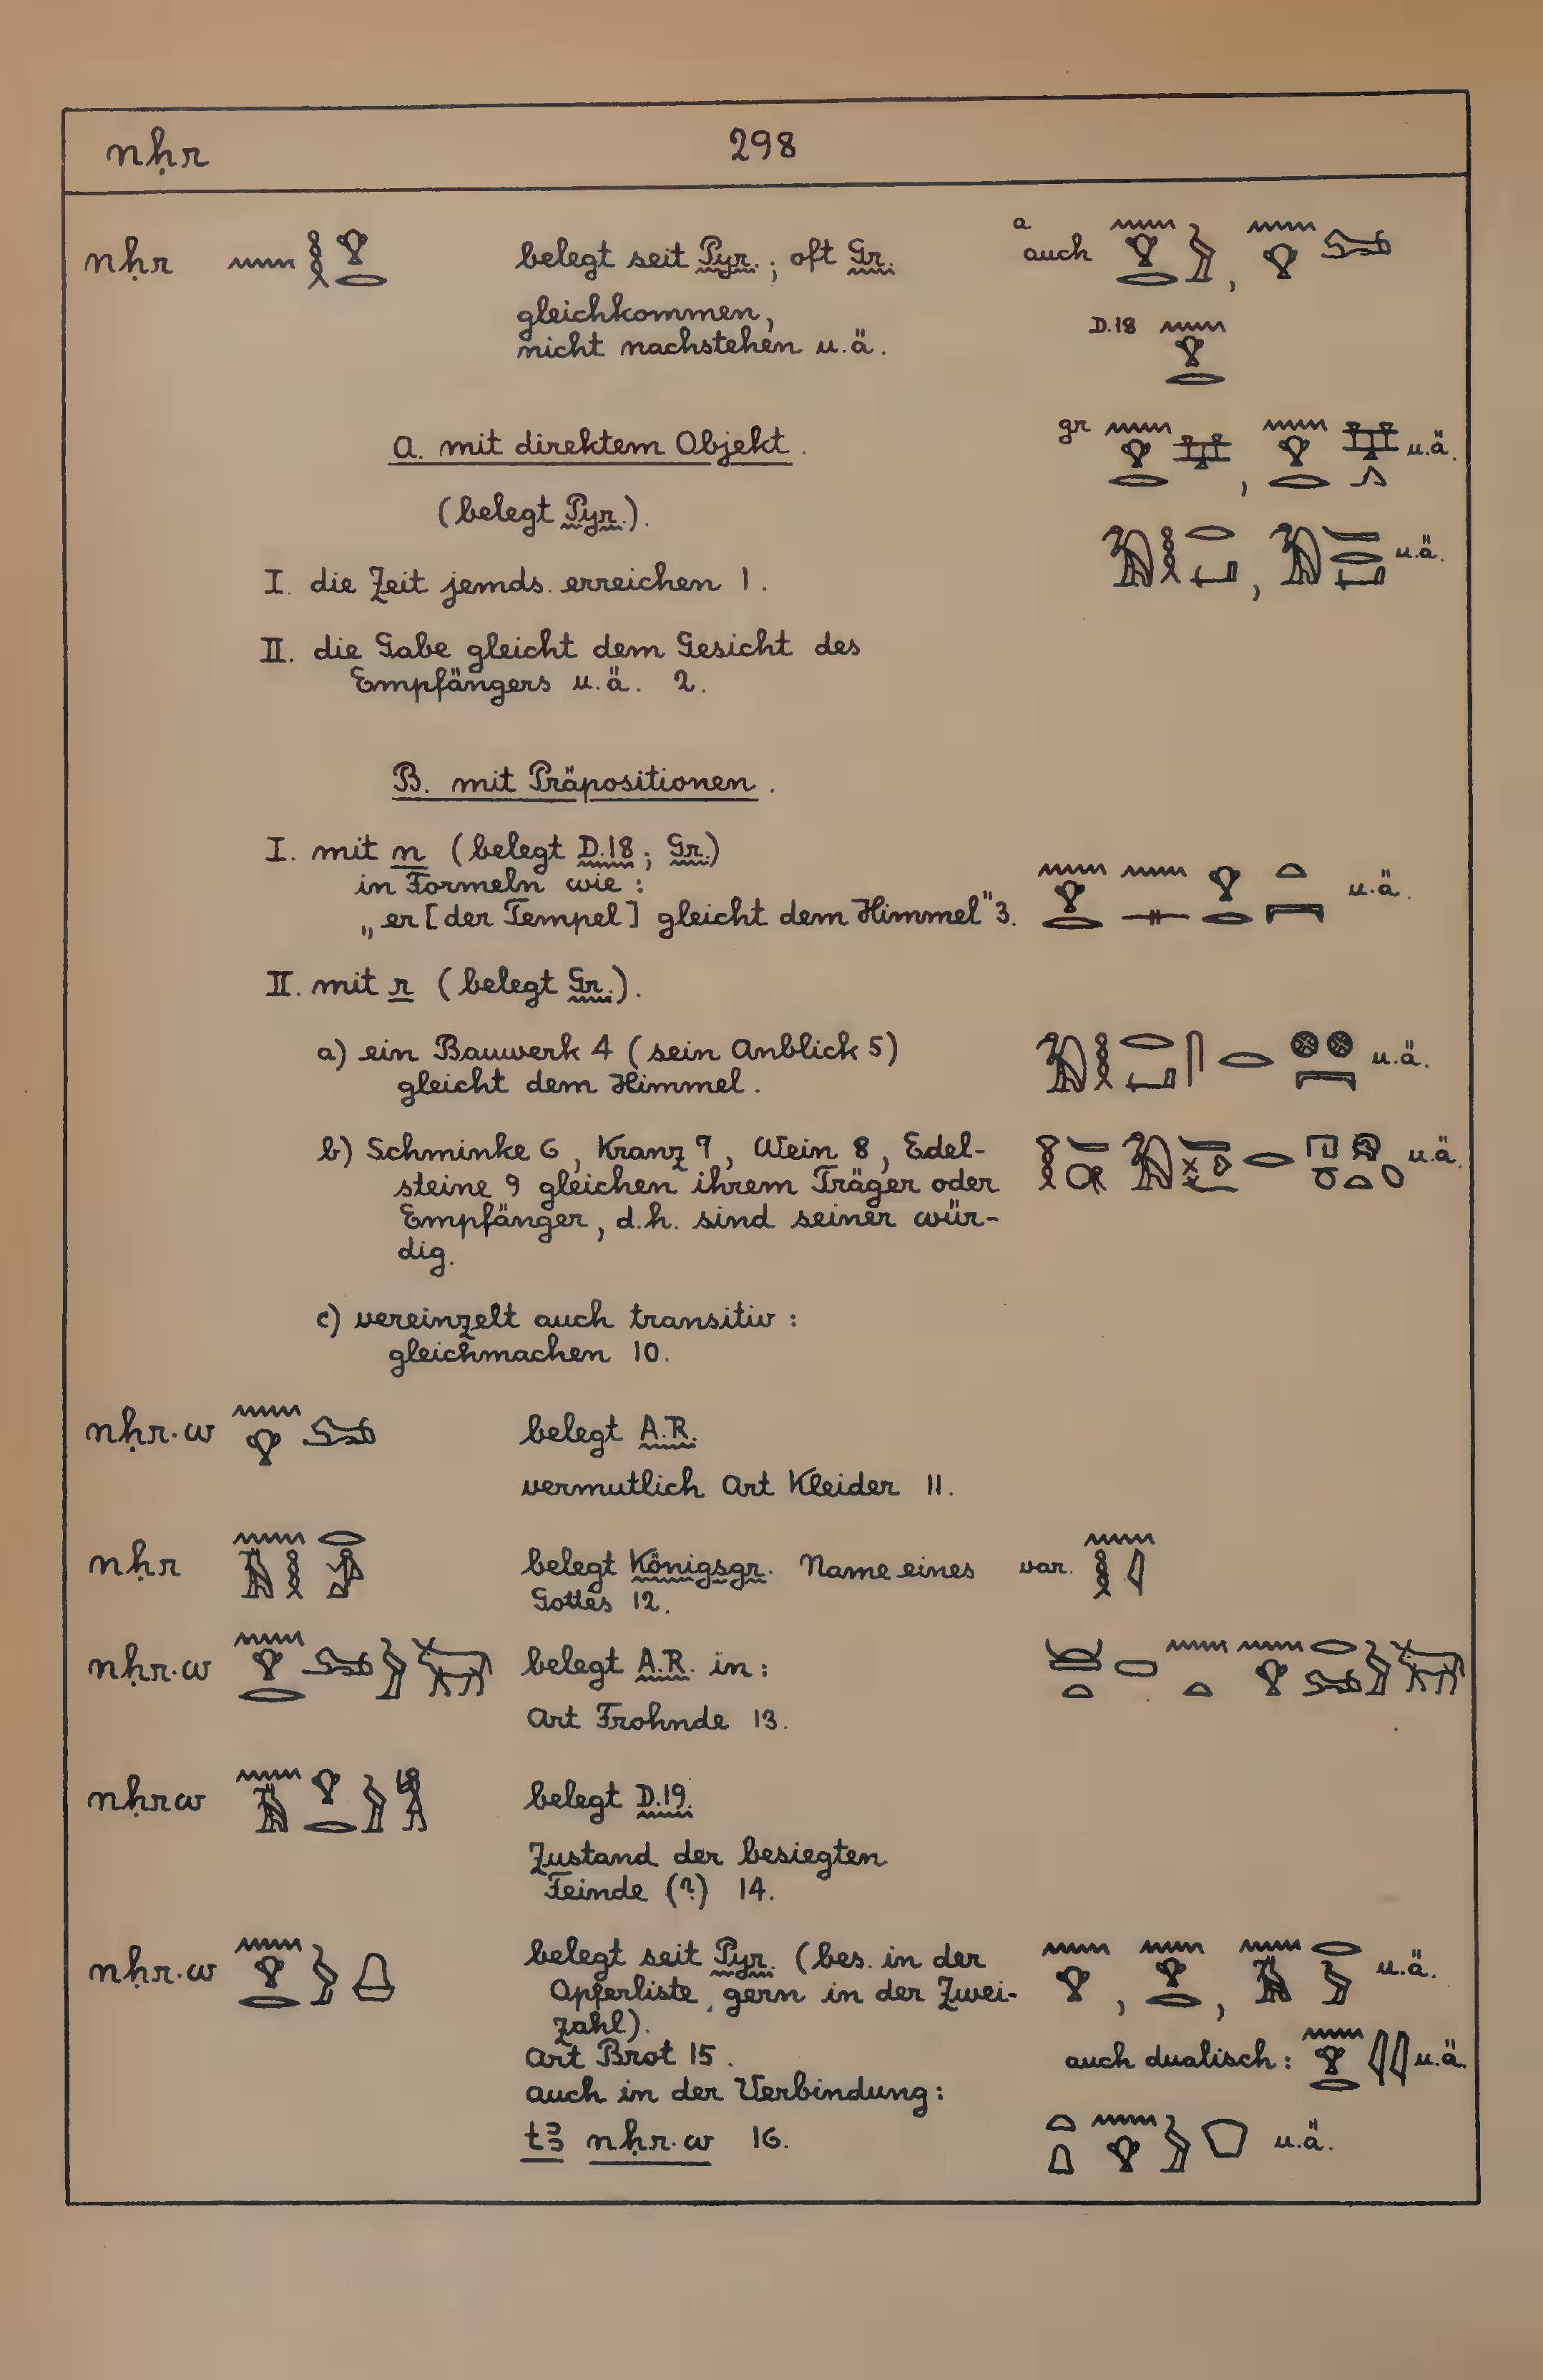 nḥr 298
nḥr belegt seit Pyr.; oft Gr.
a auch
gleichkommen,
nicht nachstehen u.ä.
D.18
A. mit direktem Objekt.
gr u.ä.
(belegt Pyr.).
u.ä.
I. die Zeit jemds. erreichen 1.
II. die Gabe gleicht dem Gesicht des
Empfängers u.ä. 2.
B. mit Präpositionen.
I. mit n (belegt D.18; Gr.)
in Formeln wie:
„er [der Tempel] gleicht dem Himmel" 3. u.ä.
II. mit r (belegt Gr.).
a) ein Bauwerk 4 (sein Anblick 5) u.ä.
gleicht dem Himmel.
b) Schminke 6, Kranz 7, Wein 8, Edel- u.ä.
steine 9 gleichen ihrem Träger oder
Empfänger, d.h. sind seiner wür-
dig.
c) vereinzelt auch transitiv:
gleichmachen 10.
nḥr·w belegt A.R.
vermutlich Art Kleider 11.
nḥr belegt Königsgr. Name eines var.
Gottes 12.
nḥr·w belegt A.R. in:
Art Frohnde 13.
nḥrw belegt D.19.
Zustand der besiegten
Feinde (?) 14.
nḥr·w belegt seit Pyr. (bes. in der u.ä.
Opferliste, gern in der Zwei-
zahl).
Art Brot 15. auch dualisch: u.ä.
auch in der Verbindung:
tꜣ nḥr·w 16. u.ä.